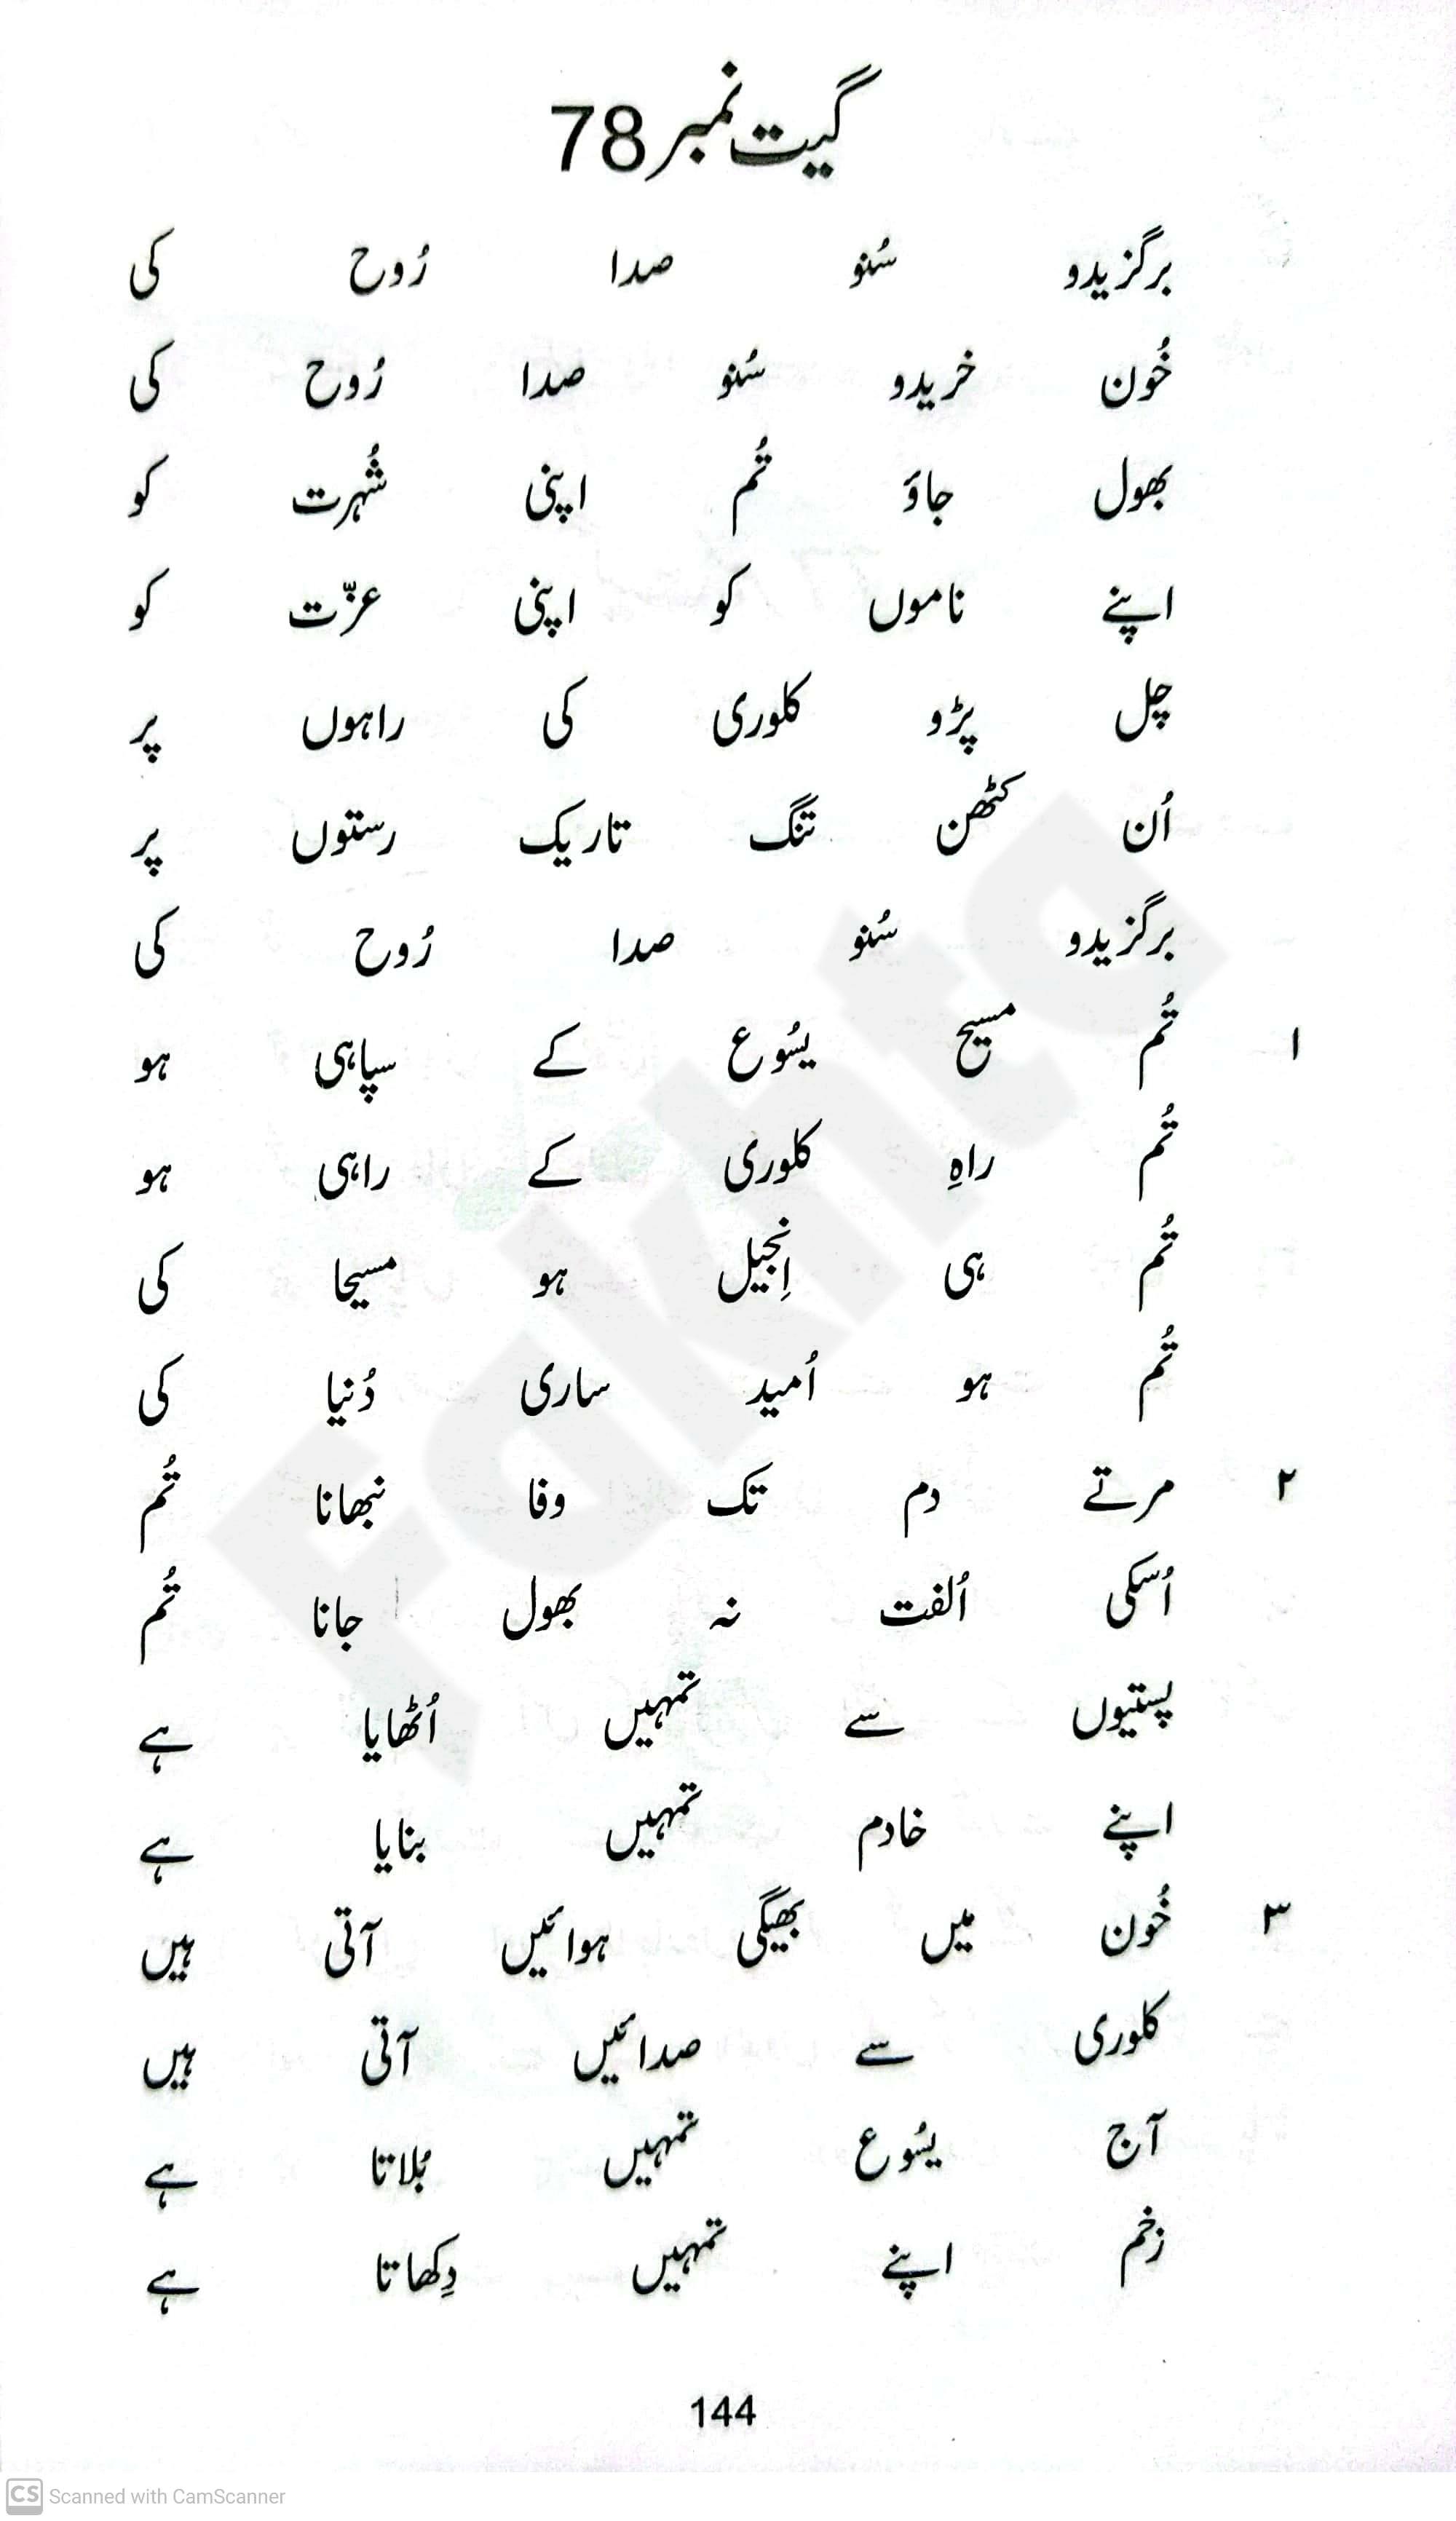 گیت نمبر 78
برگزیدو سُنو صدا رُوح کی
خُون خریدو سُنو صدا رُوح کی
بھول جاؤ تُم اپنی شُہرت کو
اپنے ناموں کو اپنی عزّت کو
چل پڑو کلوری کی راہوں پر
اُن کٹھن تنگ تاریک رستوں پر
برگزیدو سُنو صدا رُوح کی
۱ تُم مسیح یسُوع کے سپاہی ہو
تُم راہِ کلوری کے راہی ہو
تُم ہی اِنجیل ہو مسیحا کی
تُم ہو اُمید ساری دُنیا کی
۲ مرتے دم تک وفا نبھانا تُم
اُسکی اُلفت نہ بھول جانا تُم
پستیوں سے تمہیں اُٹھایا ہے
اپنے خادم تمہیں بنایا ہے
۳ خُون میں بھیگی ہوائیں آتی ہیں
کلوری سے صدائیں آتی ہیں
آج یسُوع تمہیں بُلاتا ہے
زخم اپنے تمہیں دِکھاتا ہے
144
Fakhta
CS Scanned with CamScanner